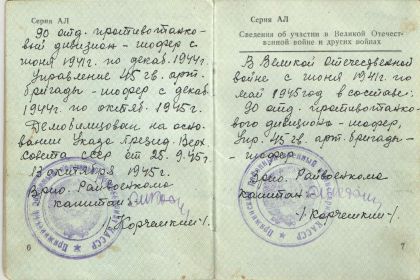 Серия АЛ
90 отд. противотанко-
вый дивизион - шофер с
июня 1941г. по декаб. 1944г.
Управление 45 гв. арт.
бригады - шофер с декаб.
1944г. по октяб. 1945г.
Демобилизован на осно-
вании Указа Презид. Верх
Совета СССР от 25.9.45г.
октября 1945г.
Врио. Райвоенкома
капитан
/Корчемкин/.
6
Серия АЛ
Сведения об участии в Великой Отечест-
венной войне и других войнах
В Великой Отечественной
войне с июня 1941г. по
май 1945 год в составе:
90 отд. противотанко-
вого дивизиона - шофер,
Упр. 45 гв. арт. бригады -
- шофер
Врио. Райвоенкома
капитан
/Корчемкин/.
7